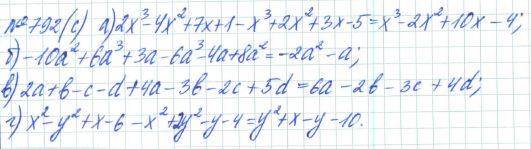 №792(с) а) 2x³-4x²+7x+1-x³+2x²+3x-5=x³-2x²+10x-4;
б) -10a²+6a³+3a-6a³-4a+8a²=-2a²-a;
в) 2a+b-c-d+4a-3b-2c+5d=6a-2b-3c+4d;
г) x²-y²+x-6-x²+2y²-y-4=y²+x-y-10.